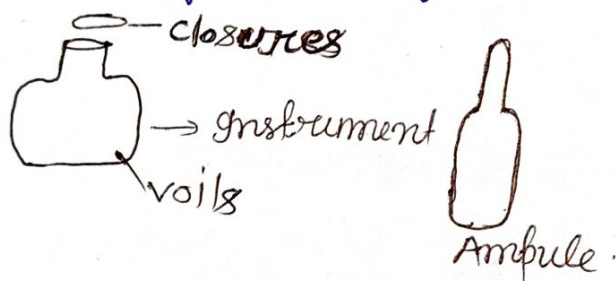 closures
Instrument
voils
Ampule.